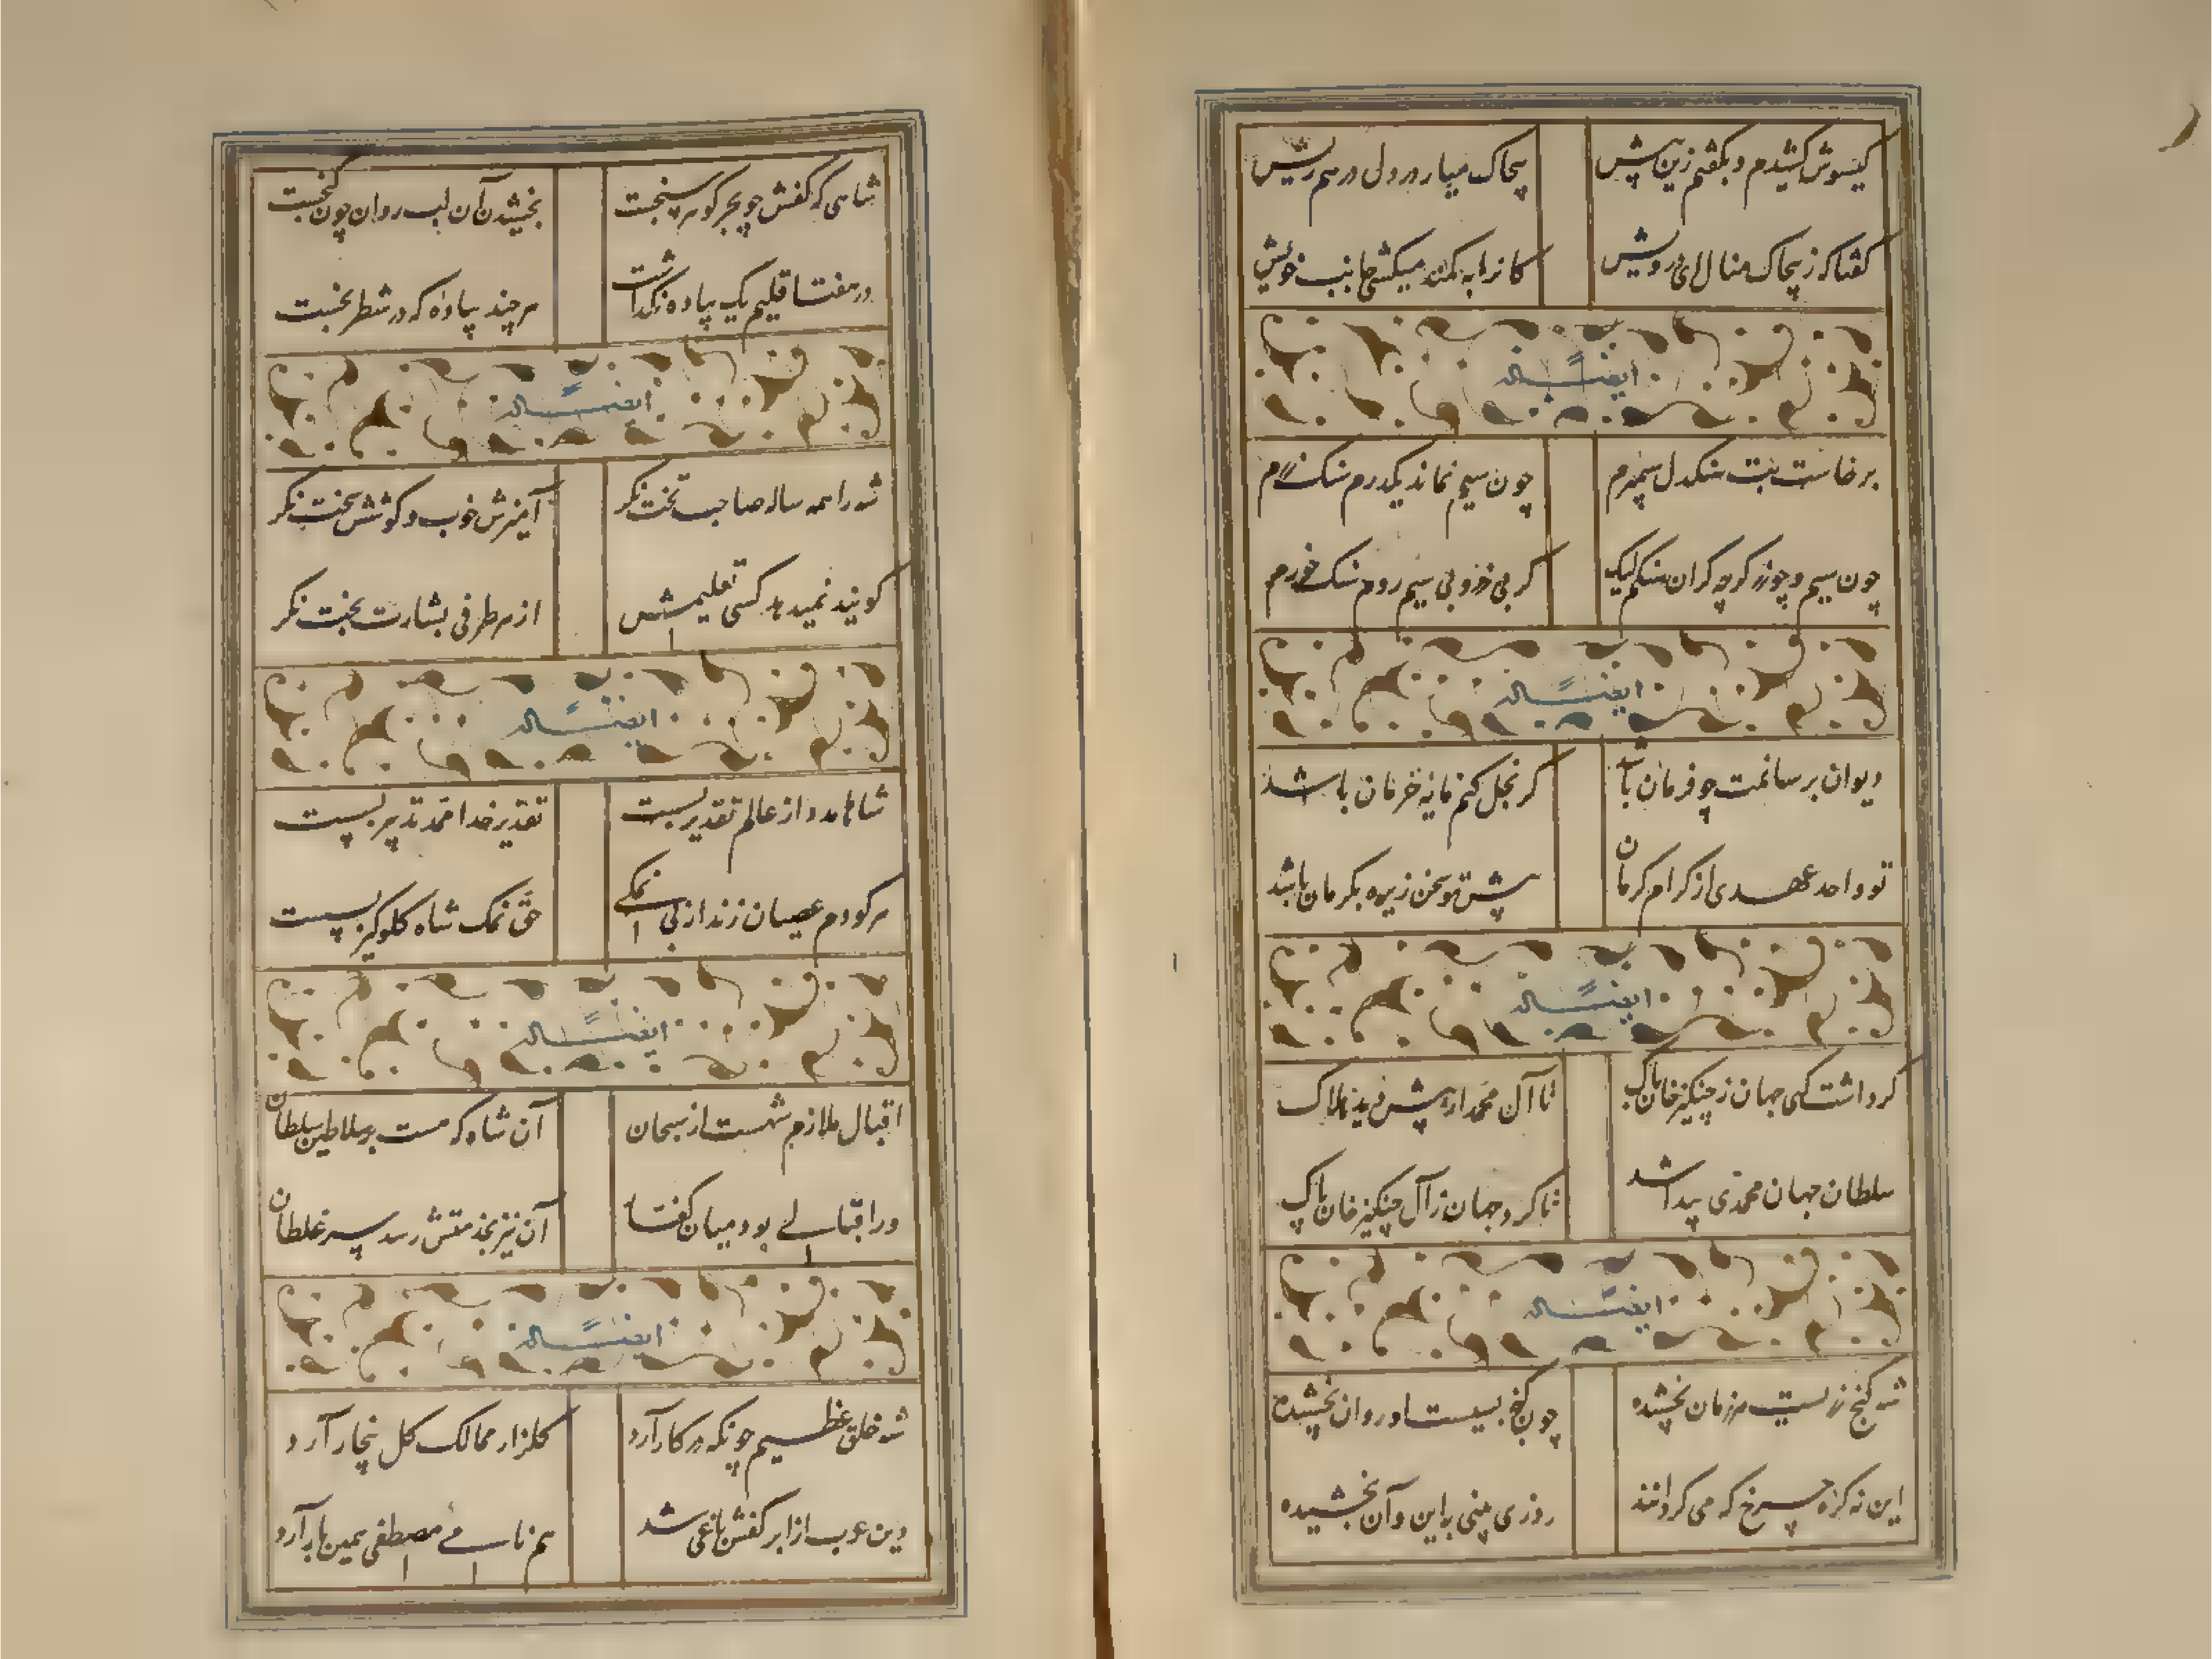 کیسوش کشیدم و بکفتم زین پیش
پیچاک میار در دل درهم ریش
کفتا که ز پیچاک منال ای درویش
کانرا به کمند میکشم جانب خویش
ایضاً له
برخاست بت سنکدل سیمبرم
چون سیم نماند یکدرم سنک
چون سیم و چو زر کرچه کران سنکم لیک
کر بی زر و بی سیم روم سنک خورم
ایضاً له
دیوان بر سانمت چو فرمان باشد
کر بخل کنم مایه حرمان باشد
تو واحد عهدی از کرام کرمان
پیش تو سخن زیره بکرمان باشد
ایضاً له
کرد اشت کهی جهان ز چنکیز خان باک
تا آل محمد از پیش دید هلاک
سلطان جهان محمدی پیدا شد
تا کرد جهان ز آل چنکیز خان پاک
ایضاً له
شه کنج نهایست هر زمان بخشیده
چون بیست او روان بخشیده
این نه کره چرخ که می کردانند
روزی بینی به این و آن بخشیده
شاهی که کفش چو بحر کوهر سنجست
بخشیدن آن لب روان چون کنجست
در هفت اقلیم یک پیاده نکذاشت
هر چند پیاده که در شطرنجست
ایضاً له
شه را همه ساله صاحب تخت نکر
آمیزش خوب و کوشش سخت نکر
کویند نمیدهد کسی تعلیمش
از هر طرفی بشارت بخت نکر
ایضاً له
شاها مدد از عالم تقدیر بست
تقدیر خدا ممد تدبیر بست
هر کو دم عصیان زند از بی نمکی
حق نمک شاه کلوکیر بست
ایضاً له
اقبال ملازم شهست از سبحان
آن شاه که هست بر سلاطین سلطان
ور اقبالی بود میان کفتا
آن نیز بخدمتش رسد سر غلطان
ایضاً له
شه خلق عظیم چونکه در کار آرد
کلزار ممالک کل بیخار آرد
دین عرب از ابر کفش باغی شد
هم نامی مصطفی همین بار آرد